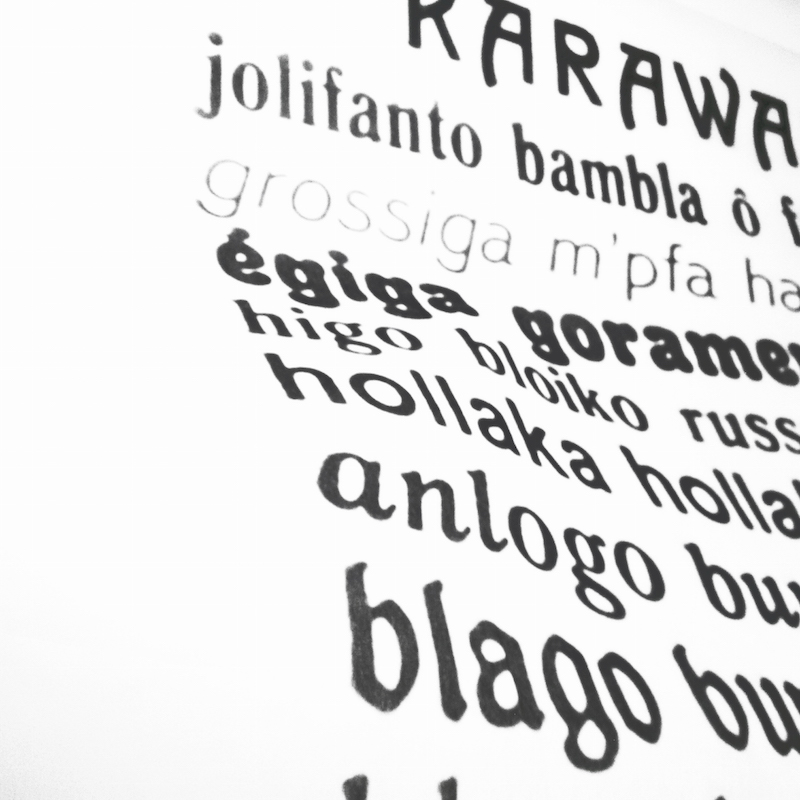 KARAWA
jolifanto bambla ô f
grossiga m'pfa ha
égiga goramen
higo bloiko russ
hollaka holla
anlogo bu
blago bu